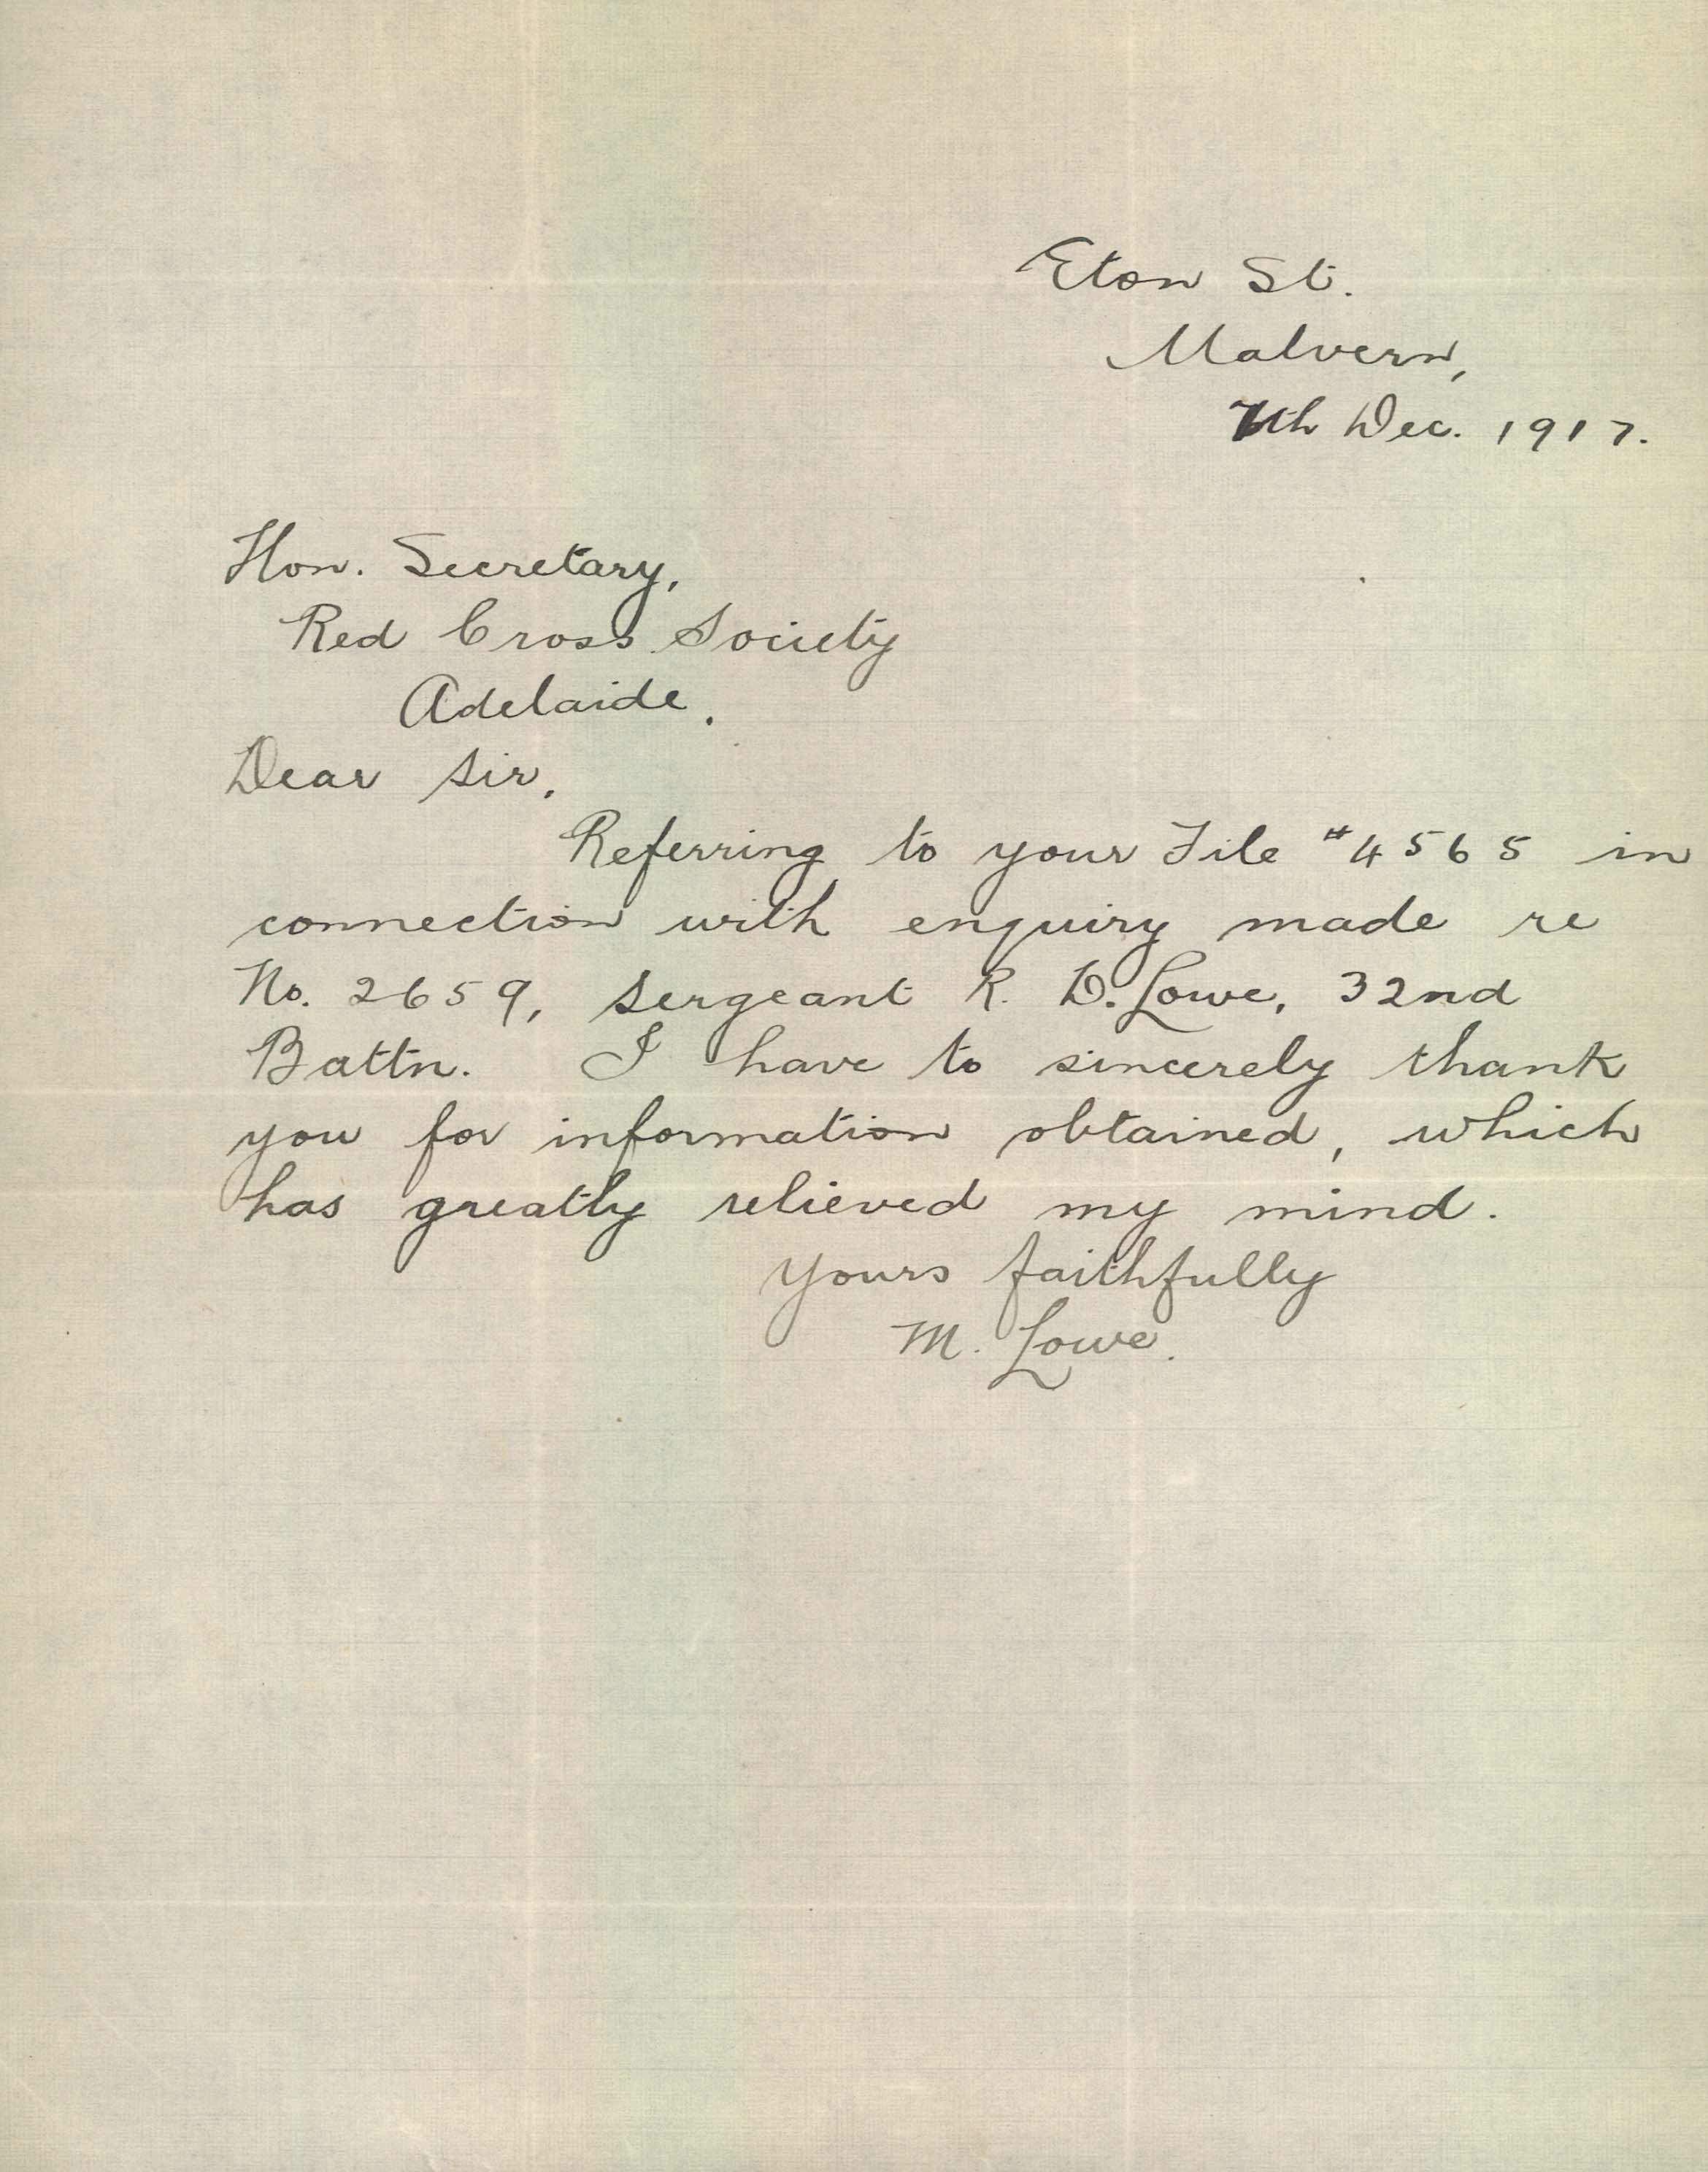 Eton St.
Malvern,
7th Dec. 1917.
Hon. Secretary,
Red Cross Society
Adelaide.
Dear Sir,
Referring to your File #4565 in
connection with enquiry made re
No. 2659, Sergeant R. D. Lowe, 32nd
Battn. I have to sincerely thank
you for information obtained, which
has greatly relieved my mind.
Yours faithfully
M. Lowe.